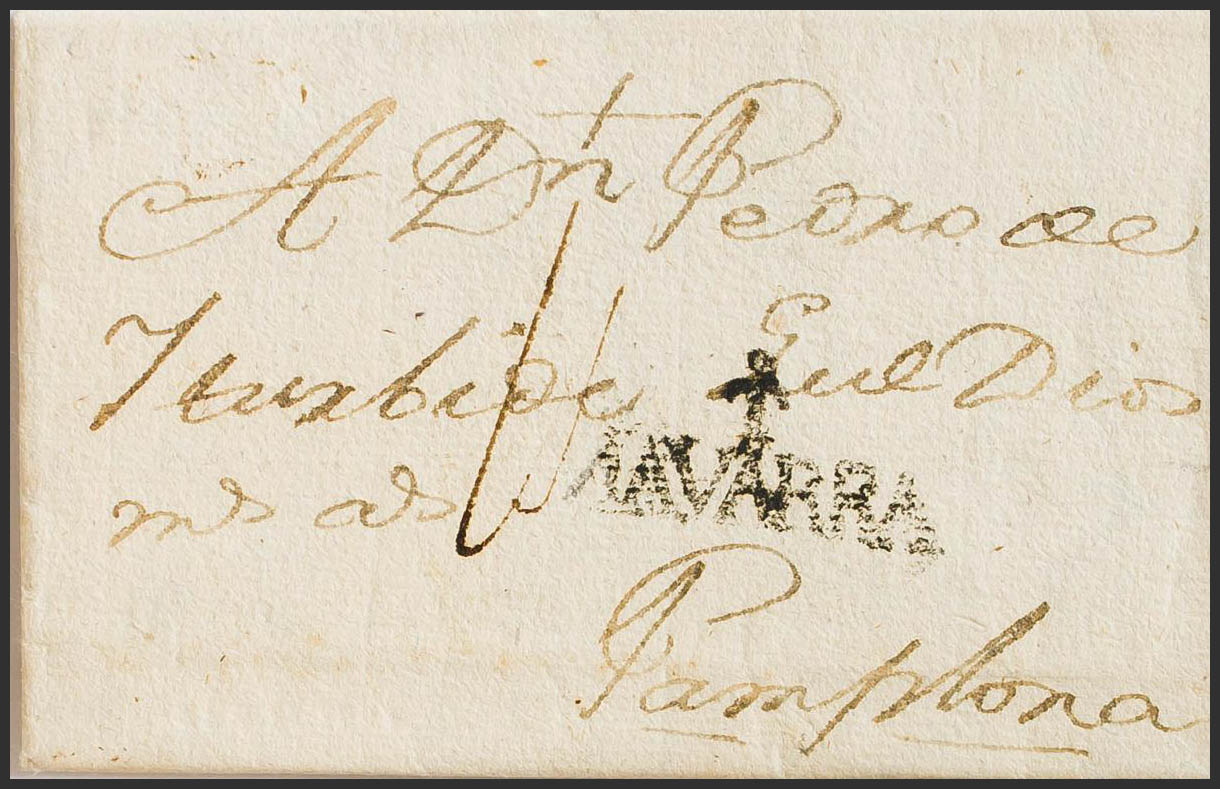 A Dn Pedro de
Iturbide Que Dios
ms as
NAVARRA
Pamplona